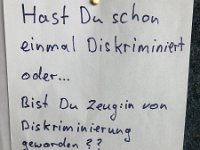 Hast Du schon
einmal Diskriminiert
oder...
Bist Du Zeug:in von
Diskriminierung
geworden ??